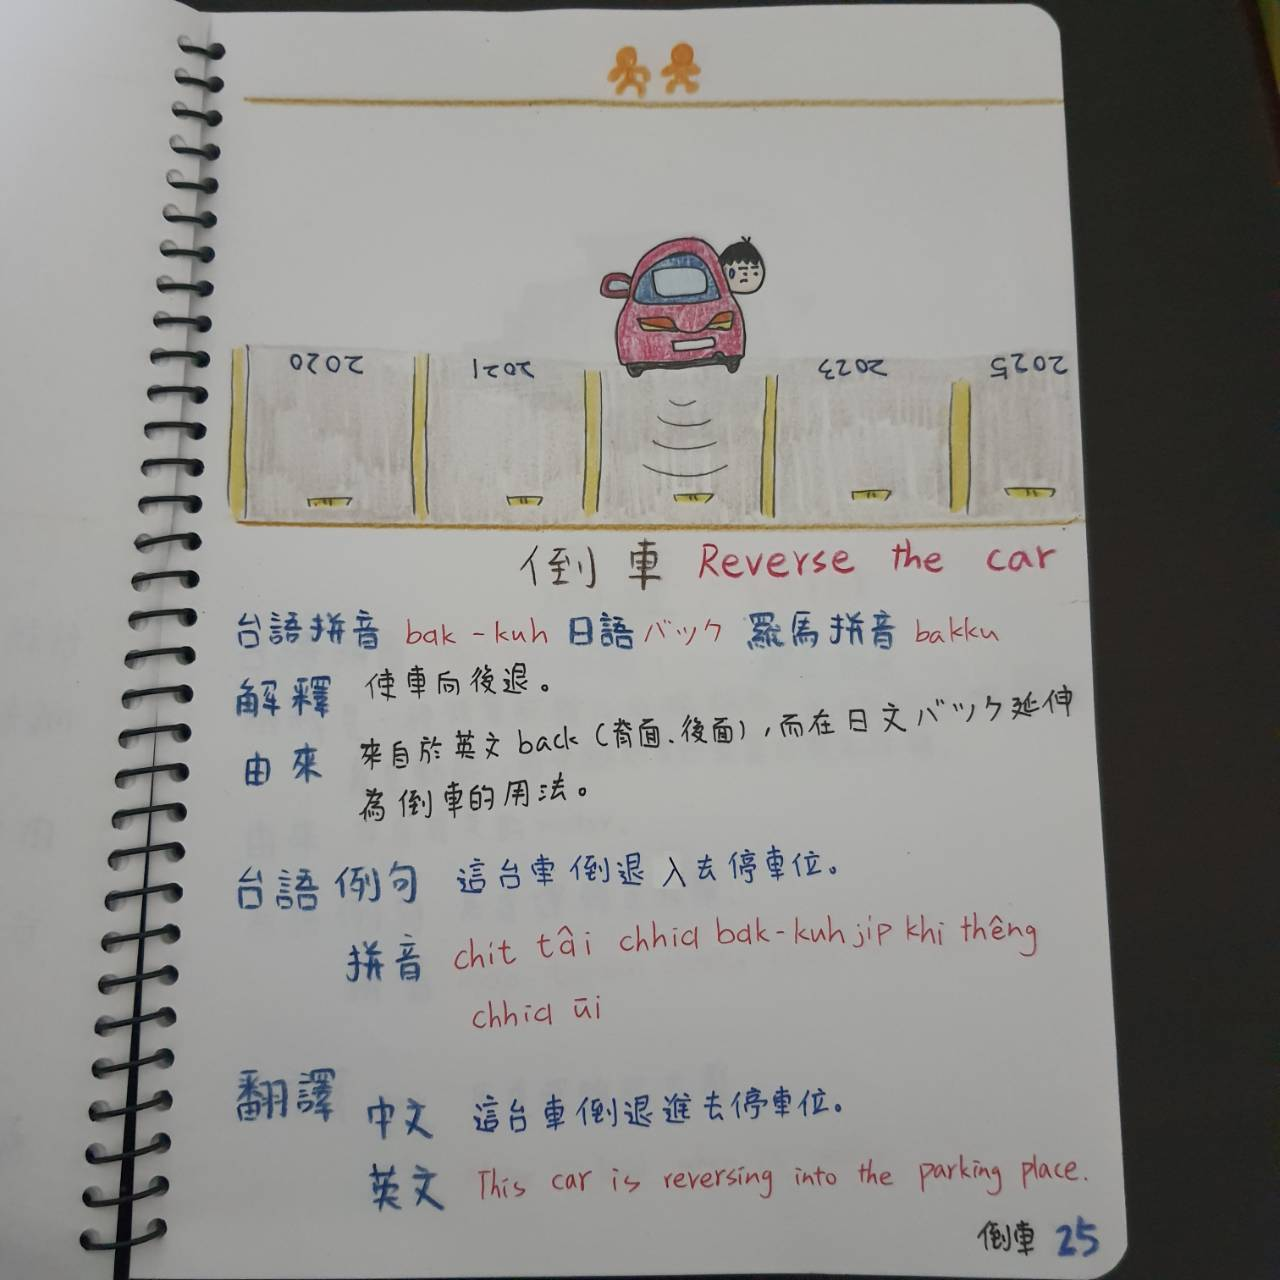 2020 2021 2023 2025
倒車 Reverse the car
台語拼音 bak-kuh 日語バック 羅馬拼音 bakku
解釋 使車向後退。
由來 來自於英文back(背面、後面),而在日文バック延伸
為倒車的用法。
台語例句 這台車倒退入去停車位。
拼音 chit tâi chhia bak-kuh jip khi thêng
chhia ūi
翻譯 中文 這台車倒退進去停車位。
英文 This car is reversing into the parking place.
倒車 25